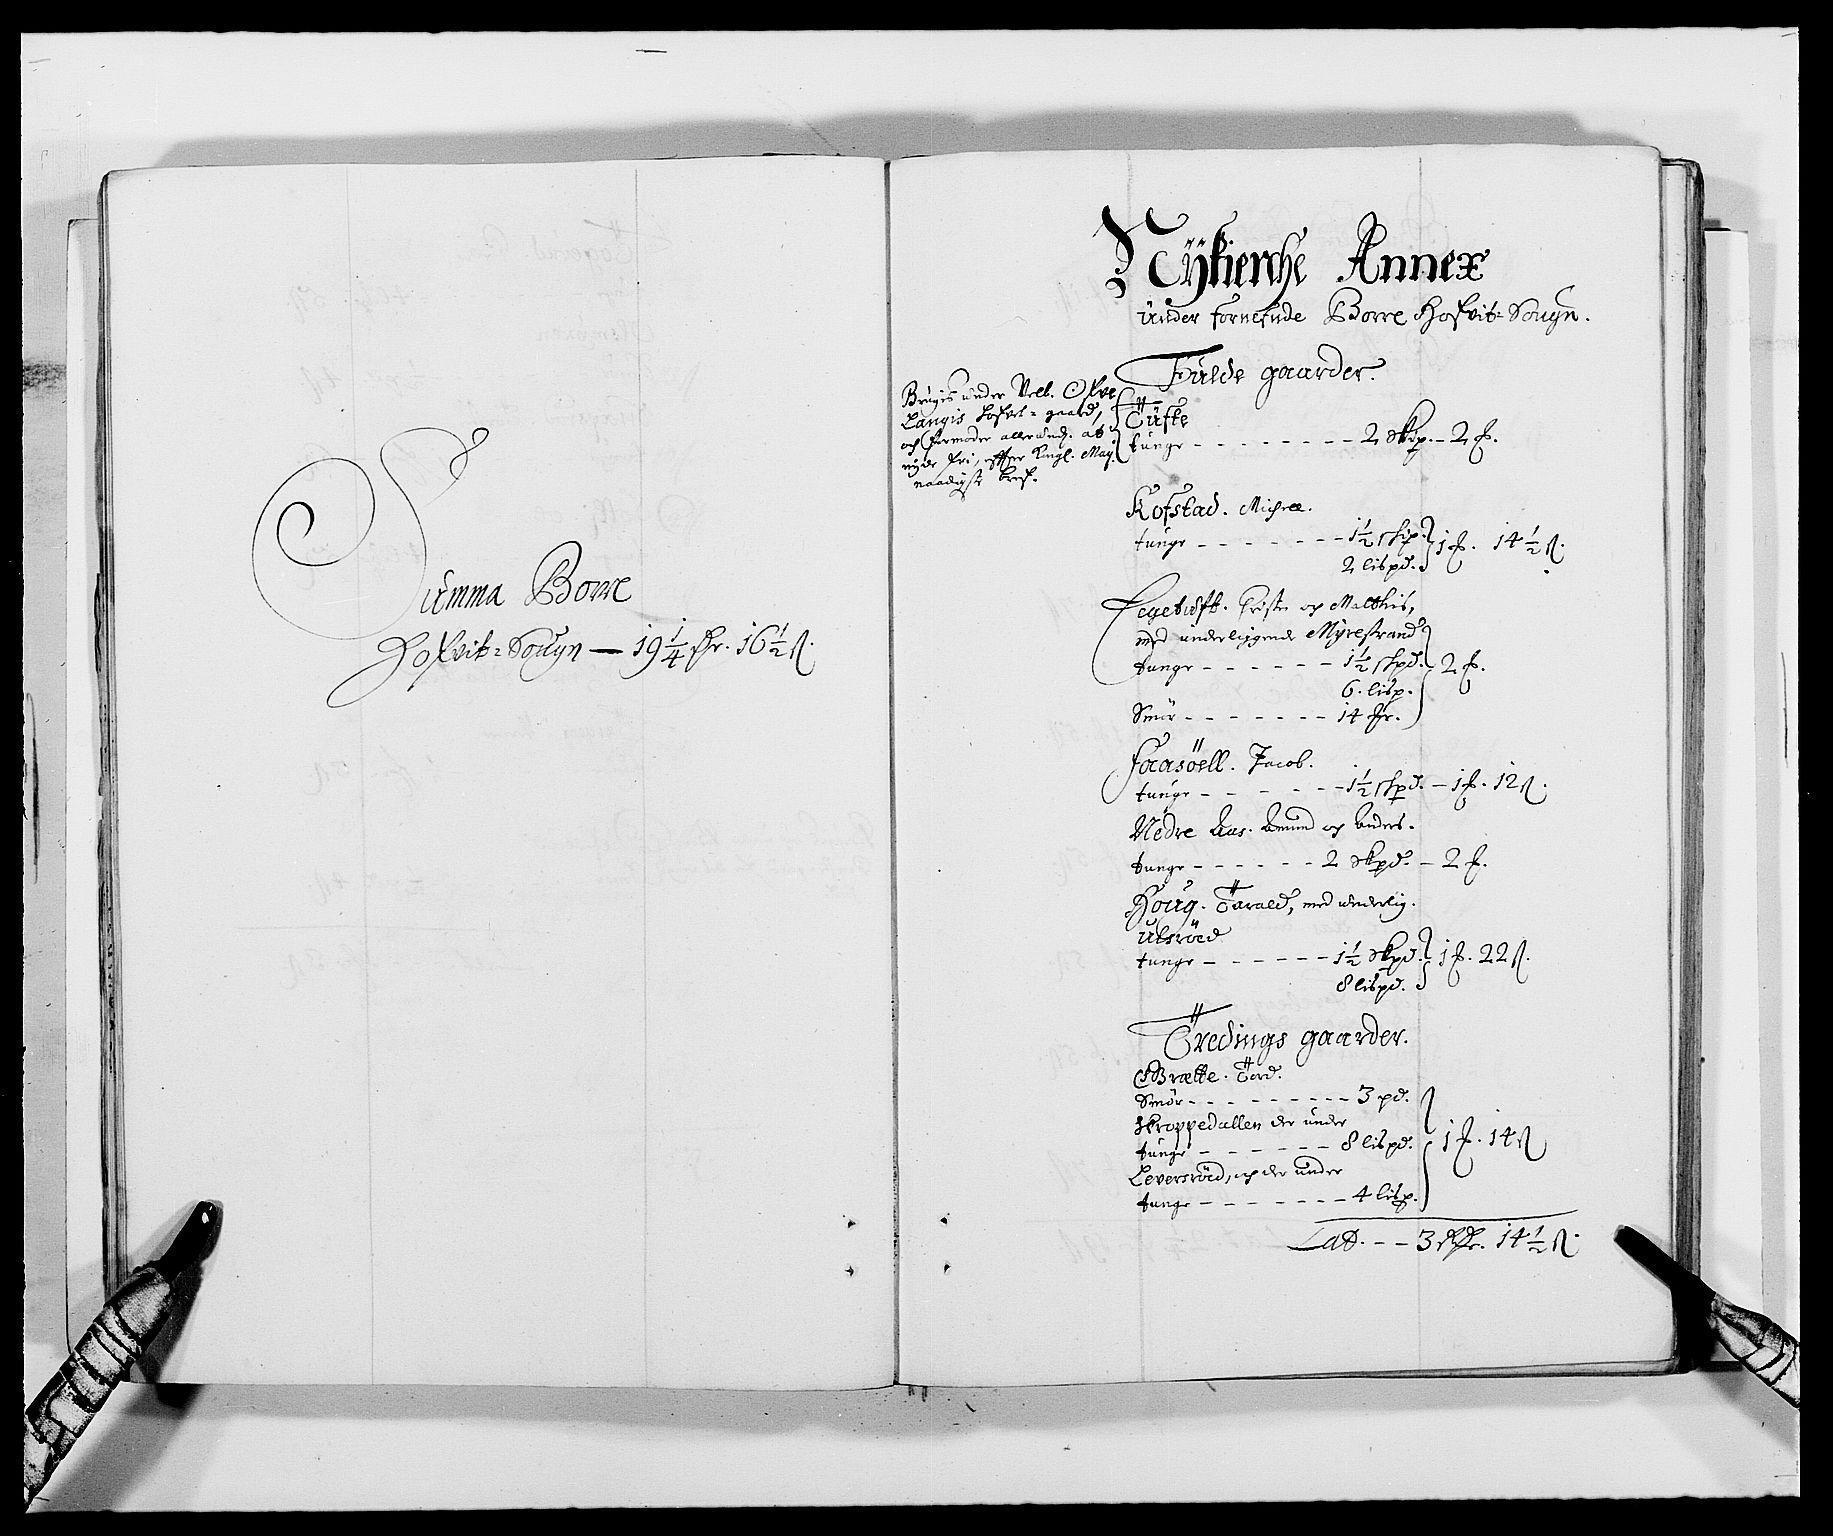 Summa Borre
Hofvit= Sougn — 19 1/4 ſkr. 16 1/2 ß.
Nÿkierche Annex
under fornefnde Borre Hofvit= Sougn.
Fulde gaarder.
Brugis under Velb. Ofve
Langis Hofvet= gaard,
och formoder allerund. at
nyde fri, efter Kngl. May.
naadigste bref.
Tufte
tunge - - - - - - - - 2 skp. - 2 f.
Kofstad. Michel.
tunge - - - - - - - 1 1/2 skp.
2 lispd. 1 f. 14 1/2 ß.
Legetufft. Christen och Matthis,
med underliggende Myrestrand
tunge - - - - - - 1 1/2 skpd. - 2 f.
6. lisp.
Smör - - - - - - - 14
Faasöell. Jacob.
tunge - - - - - - 1 1/2 skpd. - 1 f. 12 ß.
Nedre Aas. Amund och Anders.
tunge - - - - - - 2 skpd. - 2 f.
Houg. Tarald, med underlig.
Ulsröed
tunge - - - - - - 1 1/2 skpd. 1 f. 22 ß.
8 lispd.
Tredings gaarder.
Brætte. Tord.
Smör - - - - - - - - - 3 pd.
Skroppedallen der under
tunge - - - - - - 8 lispd. 1 f. 14 ß
Leversröd, och der under
tunge - - - - - - - 4 lisp.
Lat. - - 3 14 1/2 ß.